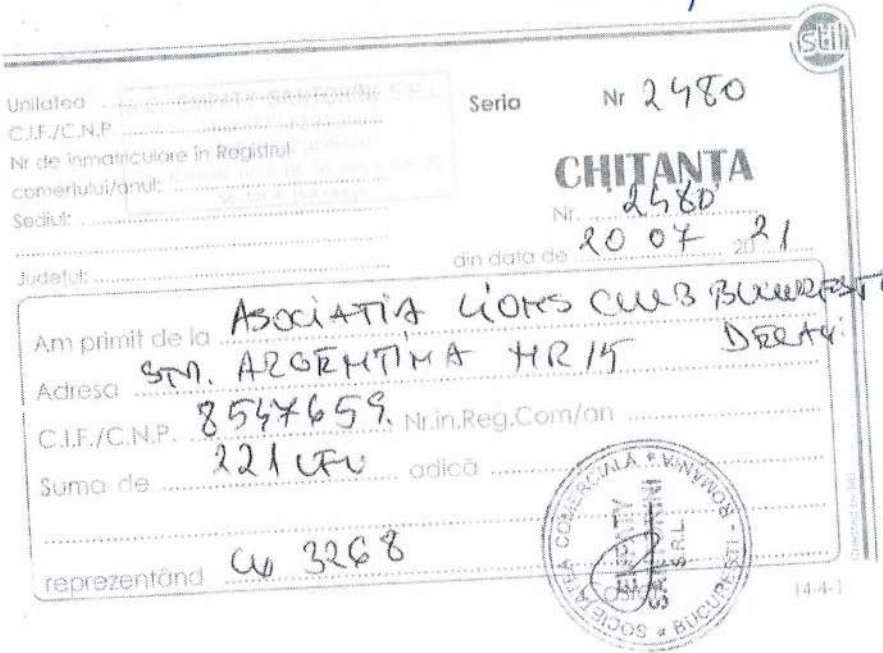 stil
Unilatea S.R.L.
C.I.F./C.N.P.
Nr de înmatriculare în Registrul
comerţului/anul:
Sediul:
Judeţul:
Seria Nr 2480
CHITANTA
Nr. 2480
din data de 20 07 20 21
Am primit de la ASOCIATIA LIONS CLUB BUCURESTI
Adresa STR. ARGENTINA NR 15
C.I.F./C.N.P. 8547659. Nr.in.Reg.Com/an
Suma de 221 adică
reprezentând 3268
SOCIETATEA COMERCIALĂ * BUCUREŞTI - ROMANIA *
S.R.L.
14-4-1